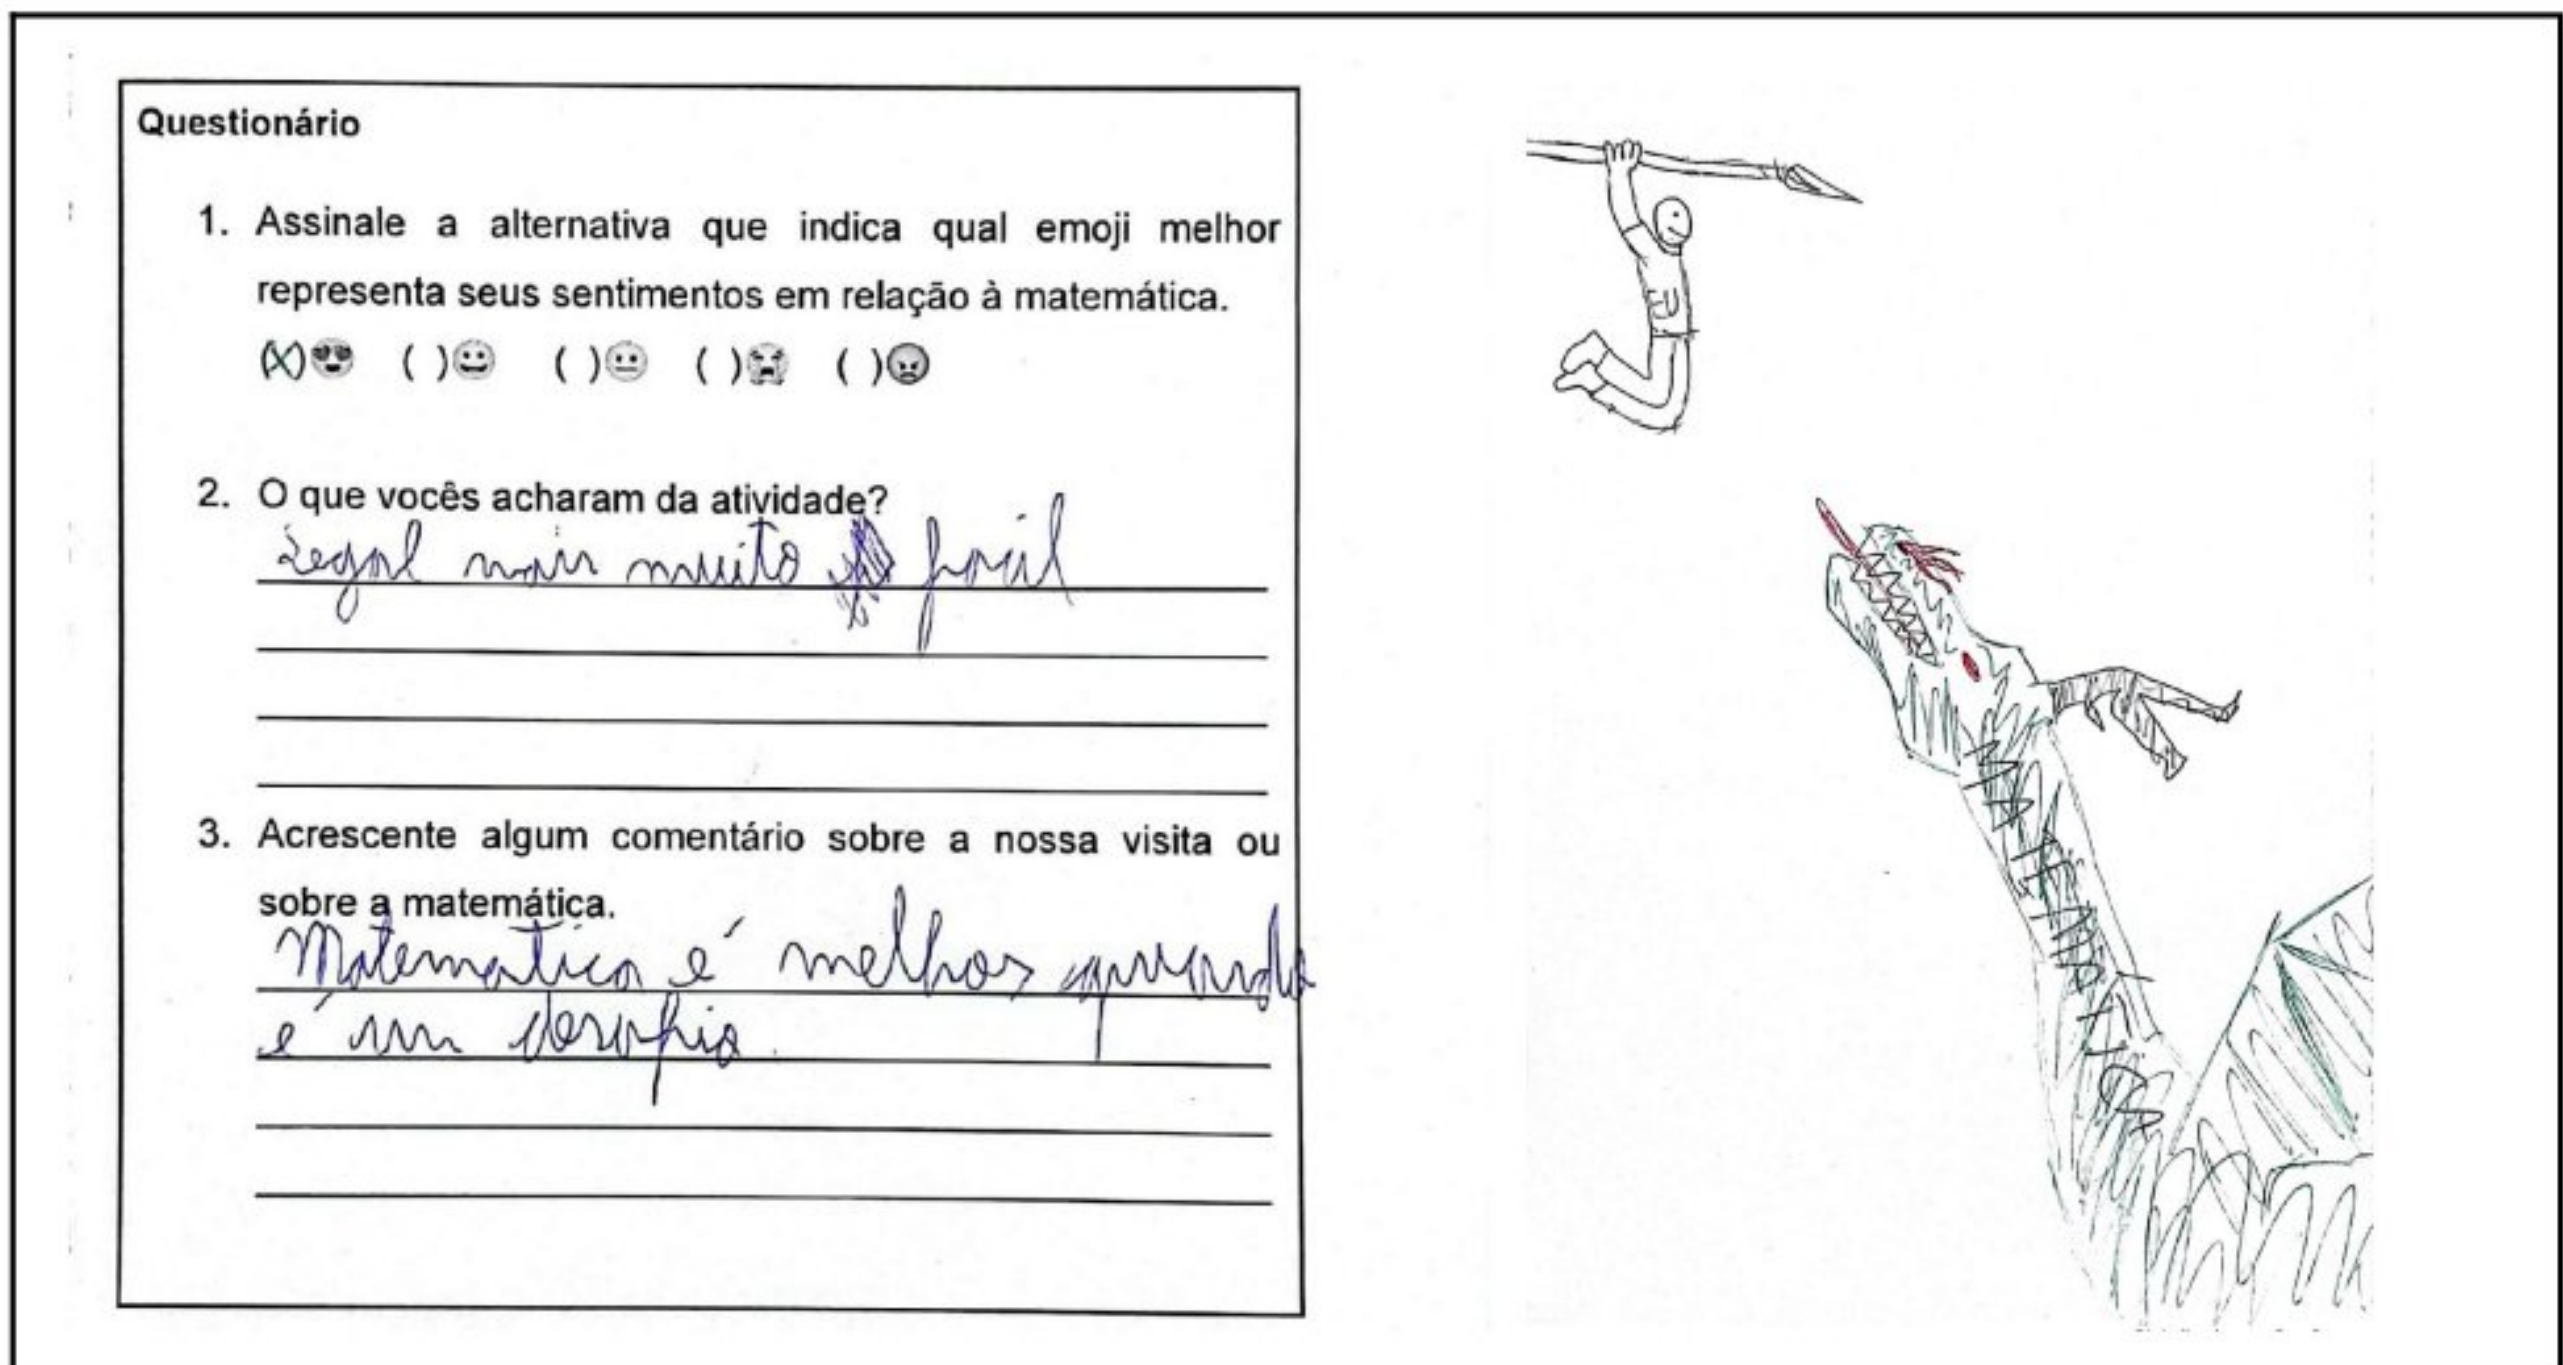 Questionário
1. Assinale a alternativa que indica qual emoji melhor
representa seus sentimentos em relação à matemática.
(X)😍 ( )😀 ( )😐 ( )😭 ( )😠
2. O que vocês acharam da atividade?
Legal mais muito facil
3. Acrescente algum comentário sobre a nossa visita ou
sobre a matemática.
Matematica é melhor quando
é um desafio
EU
MATEMATICA